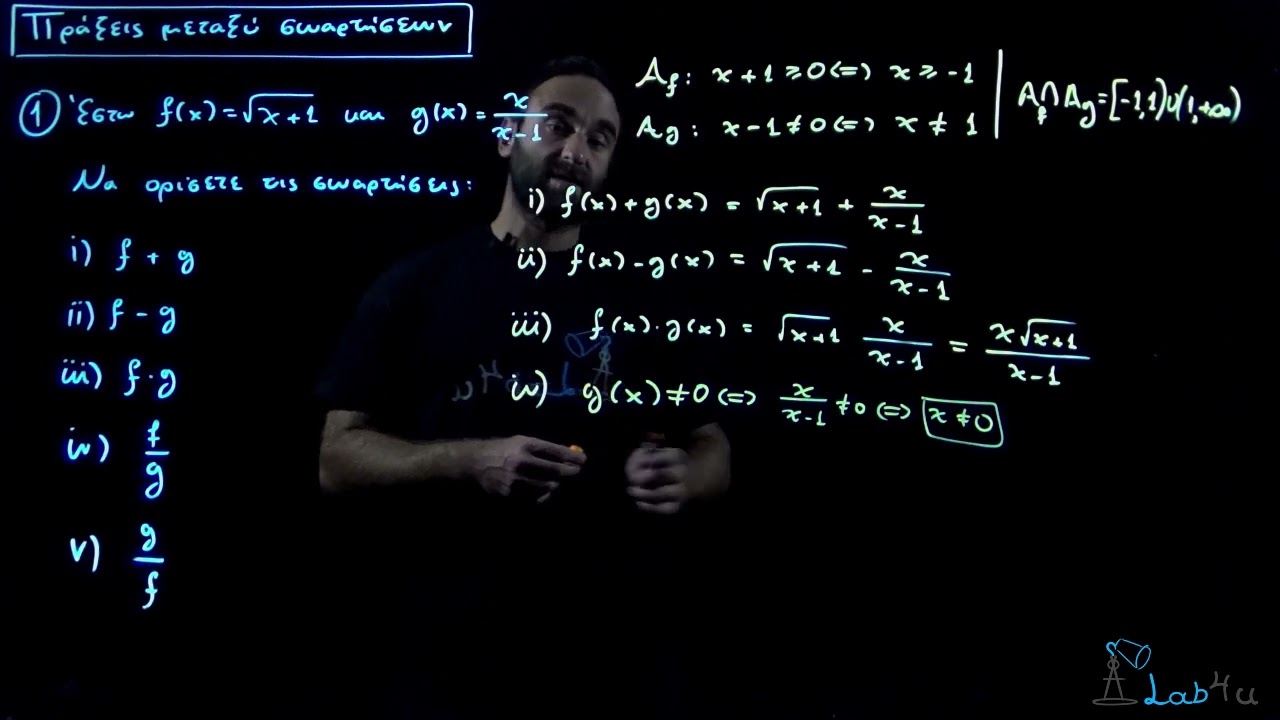 Πράξεις μεταξύ συναρτήσεων
① Έστω f(x)=√x+1 και g(x)=x/(x-1)
Να ορίσετε τις συναρτήσεις:
i) f + g
ii) f - g
iii) f · g
iv) f/g
v) g/f
A_f: x+1 ≥ 0 <=> x ≥ -1
A_g: x-1 ≠ 0 <=> x ≠ 1
A_f ∩ A_g = [-1,1)∪(1,+∞)
i) f(x)+g(x) = √x+1 + x/(x-1)
ii) f(x)-g(x) = √x+1 - x/(x-1)
iii) f(x)·g(x) = √x+1 x/(x-1) = x√x+1/(x-1)
iv) g(x) ≠ 0 <=> x/(x-1) ≠ 0 <=> x ≠ 0
Lab4u